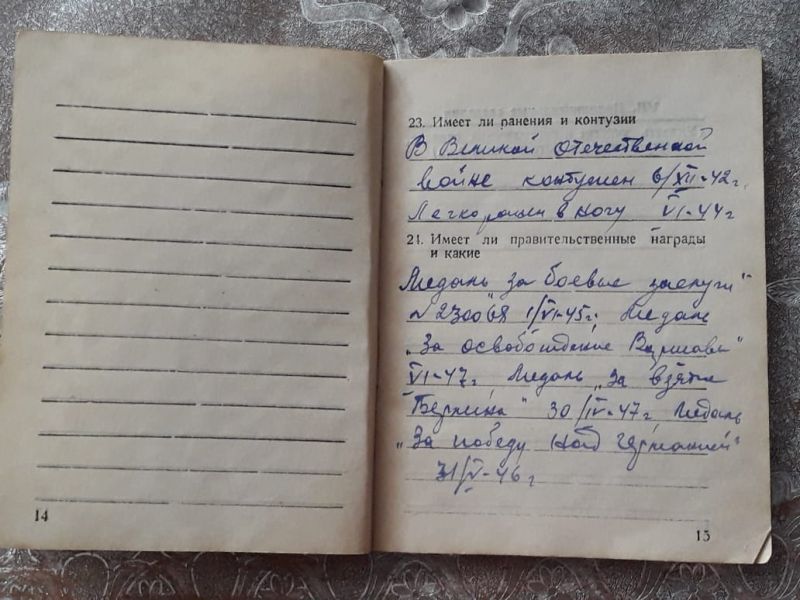 23. Имеет ли ранения и контузии
В Великой Отечественной
войне контужен 6/XII-42г.
Легко ранен в ногу VI-44г
24. Имеет ли правительственные награды
и какие
Медаль „за боевые заслуги"
№ 230068 1/VI-45г. Медаль
„За освобождение Варшавы"
VI-47г. Медаль „за взятие
Берлина" 30/IV-47г. Медаль
„За победу над Германией"
31/V-46г
14
15